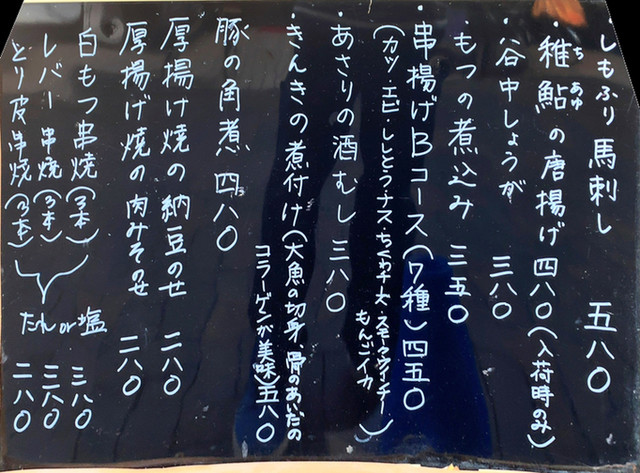 ・しもふり馬刺し 五八〇
・稚鮎の唐揚げ 四八〇(入荷時のみ)
ちあゆ
・谷中しょうが 三八〇
・もつの煮込み 三五〇
・串揚げBコース(7種)四五〇
(カツ・エビ・ししとう・ナス・ちくわチーズ・
もんごイカ)
・あさりの酒むし 三八〇
・きんきの煮付け(大魚の切身、骨のあいだの
コラーゲンが美味)五八〇
豚の角煮 四八〇
厚揚げ焼の納豆のせ 二八〇
厚揚げ焼の肉みそのせ 二八〇
白もつ串焼(3本) 三八〇
レバー串焼(3本) 三八〇
とり皮串焼(3本) 二八〇
たれor塩